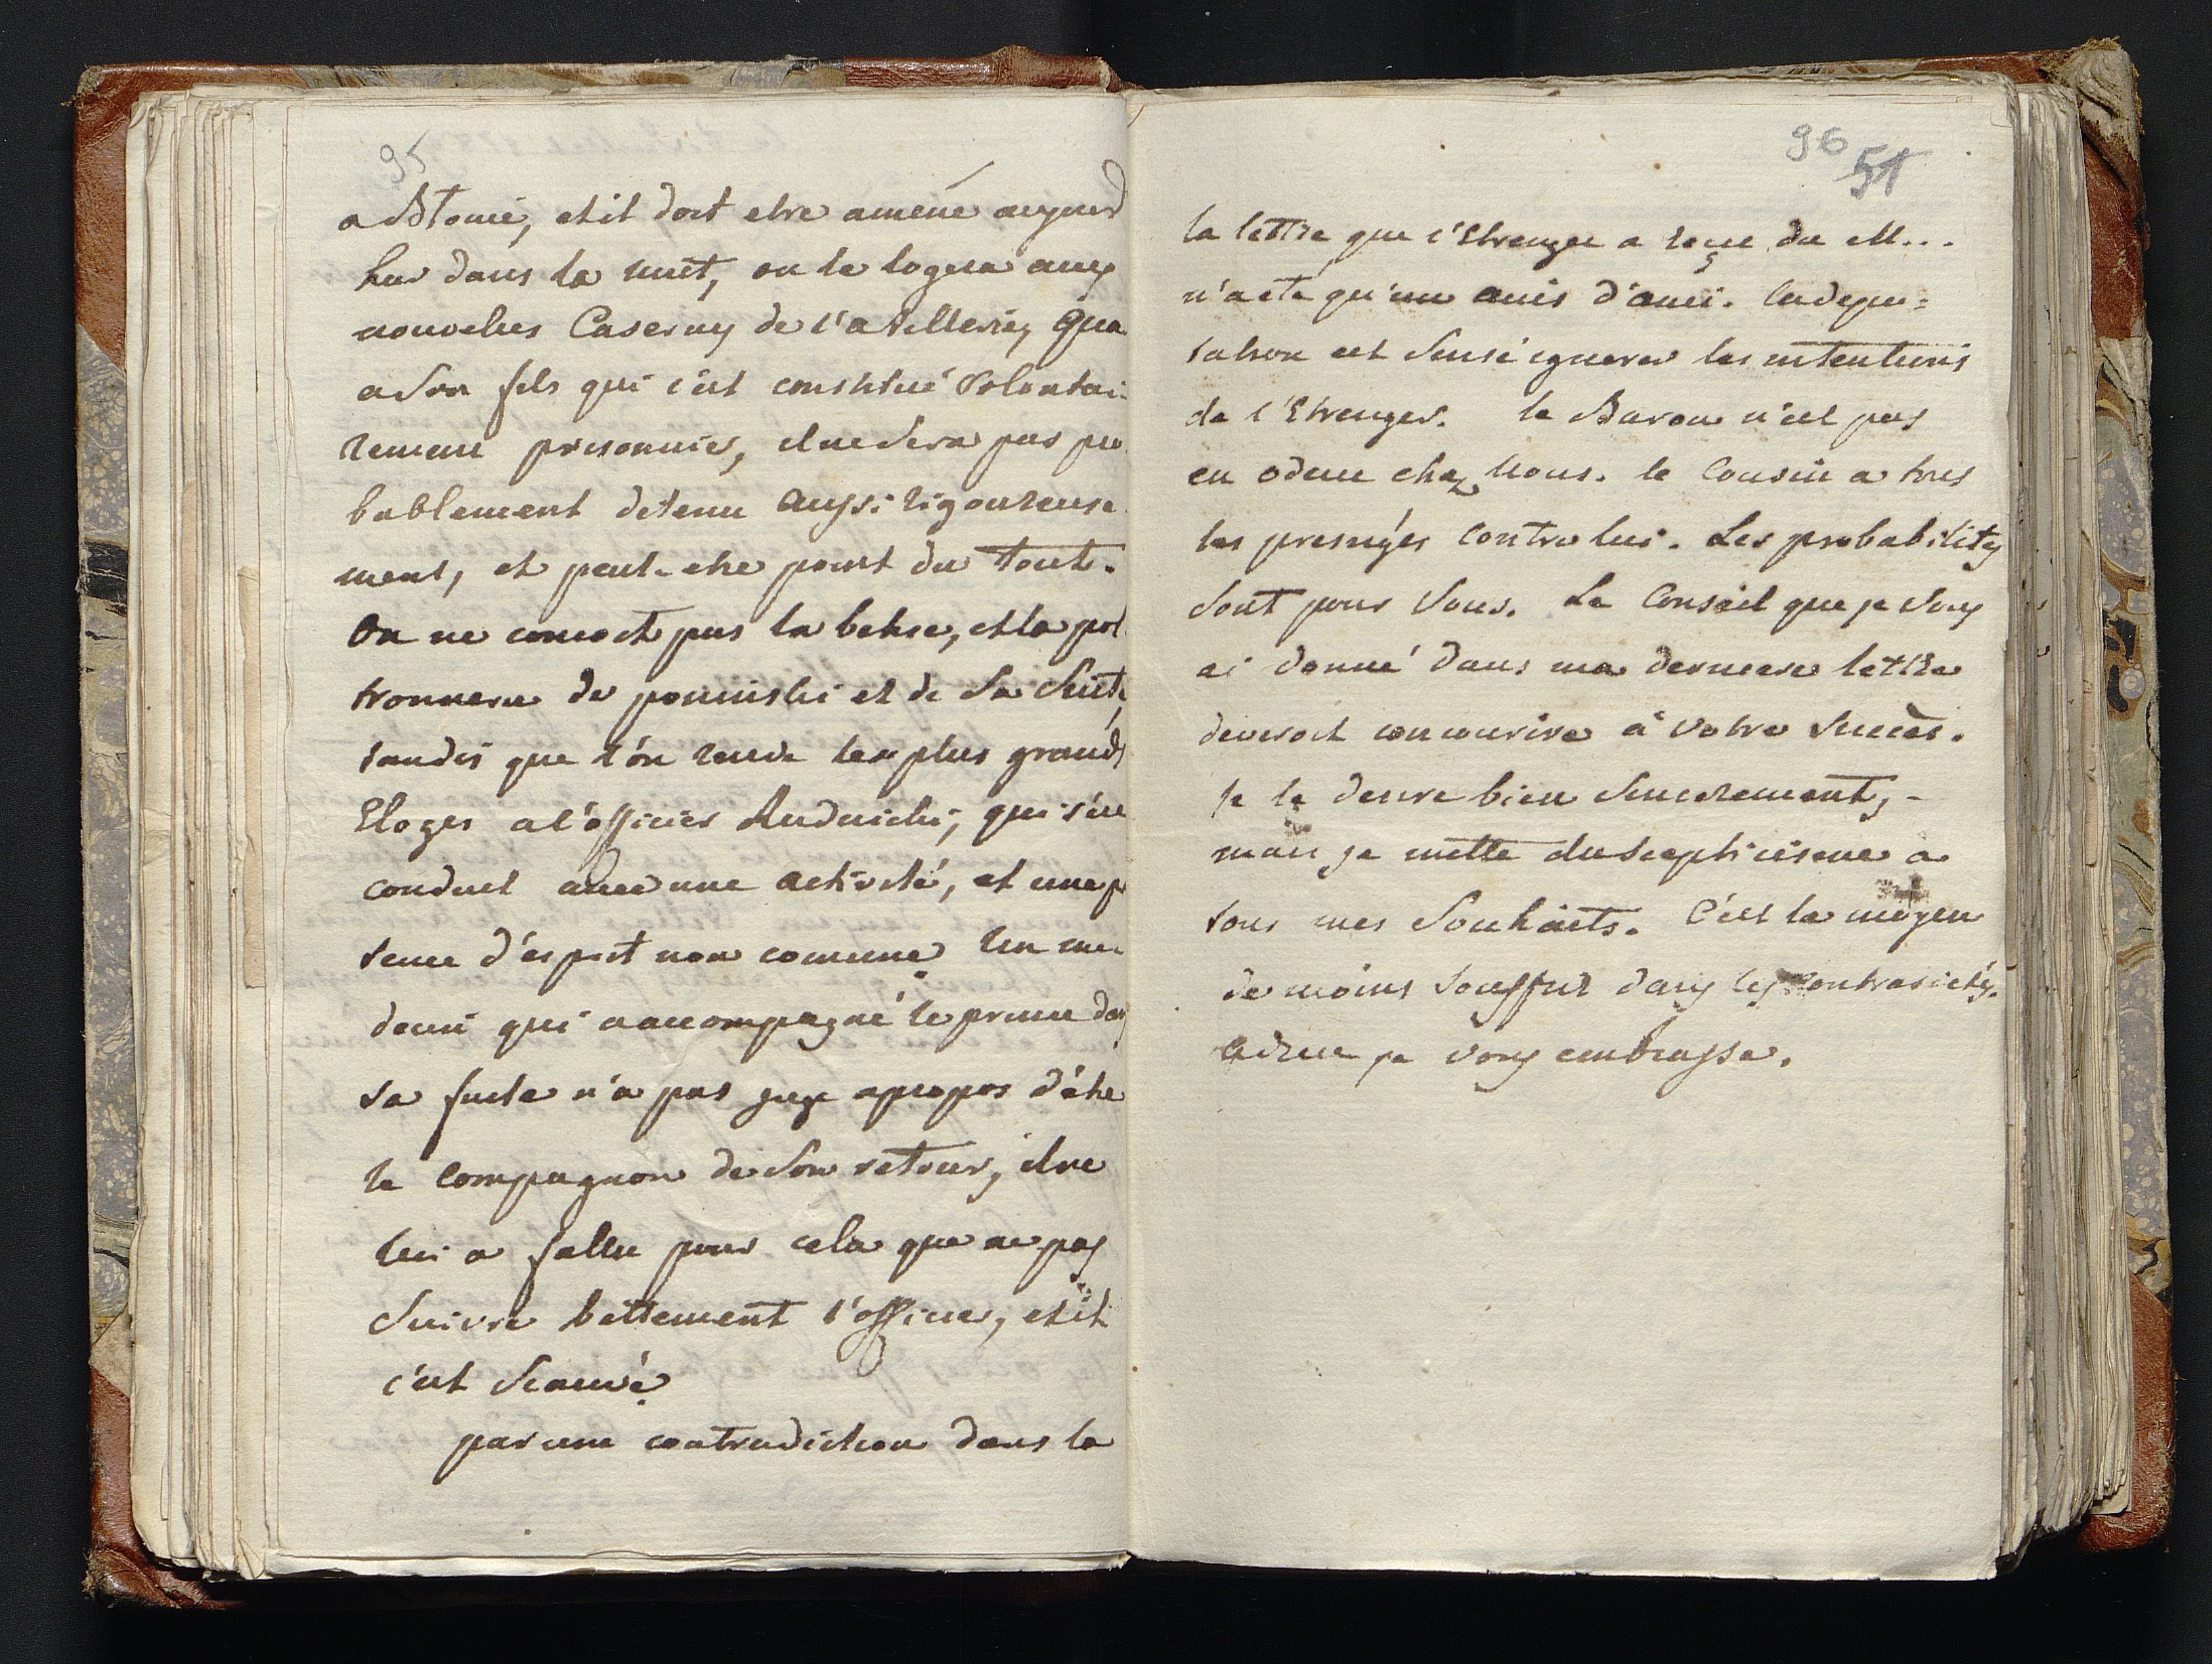 95
a Blonie, et il doit etre amené aujourd
hui dans la nuit, on le logera aux
nouvelles Casernes de l'artillerie, Qua
a son fils qui c'est constitué Volontai-
rement prisonnier, il ne sera pas pro
bablement detenu aussi rigoureuse
ment, et peut-etre point du tout.
On ne conçoit pas la betise, et la pol
tronnerie de poninski et de sa suite,
tandis que l'on rende les plus grands
Eloges a l'officier Rudnicki, qui s'est
conduit avec une activité, et une pr
sence d'esprit non comune. Un
qui a accompagné le prince dans
sa fuite n'a pas jugé apropos d'être
le compagnon de son retour, il ne
lui a fallu pour cela que ne pas
suivre bettement l'officier, et il
c'est sauvé.
par une contradiction dans la
96
51
la lettre que l'Etranger a reçue du M...
n'a eté qu'un avis d'ami. la depu=
tation est sensé ignorer les intentions
de l'Etranger. le Baron n'est pas
en odeur chez Nous. le Cousin a tous
les prejugés contre lui. Les probabilités
sont pour Vous. Le Conseil que je Vous
ai donné dans ma derniere lettre
deveroit concourire à Votre succès.
Je le desire bien sincerement, -
mais je mette du scepticisme a
tous mes souhaits. C'est le moyen
de moins souffrir dans les contrarietés.
Adieu je vous embrasse.